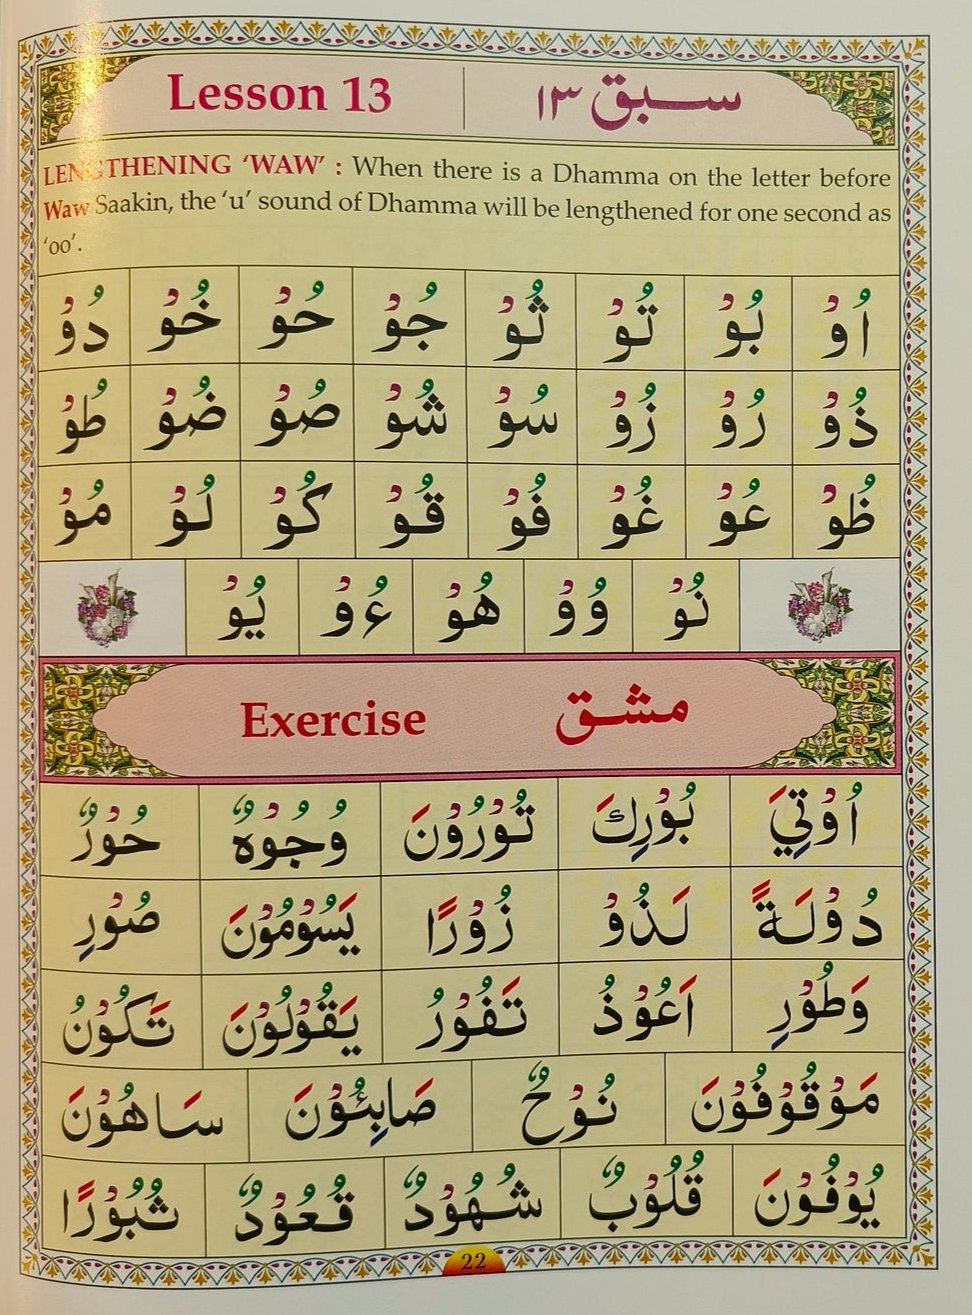 Lesson 13 سبق ١٣
LENGTHENING ‘WAW’ : When there is a Dhamma on the letter before
Waw Saakin, the ‘u’ sound of Dhamma will be lengthened for one second as
‘oo’.
اُوْ بُوْ تُوْ ثُوْ جُوْ حُوْ خُوْ دُوْ
ذُوْ رُوْ زُوْ سُوْ شُوْ صُوْ ضُوْ طُوْ
ظُوْ عُوْ غُوْ فُوْ قُوْ كُوْ لُوْ مُوْ
نُوْ وُوْ هُوْ ءُوْ يُوْ
Exercise مشق
اُوْتِيَ بُوْرِكَ تُوْرُوْنَ وُجُوْهٌ حُوْرٌ
دُوْلَةً لَذُوْ زُوْرًا يَسُوْمُوْنَ صُوْرِ
وَطُوْرِ اَعُوْذُ تَفُوْرُ يَقُوْلُوْنَ تَكُوْنُ
مَوْقُوْفُوْنَ نُوْحٌ صَابِئُوْنَ سَاهُوْنَ
يُوْفُوْنَ قُلُوْبٌ شُهُوْدٌ قُعُوْدٌ ثُبُوْرًا
22